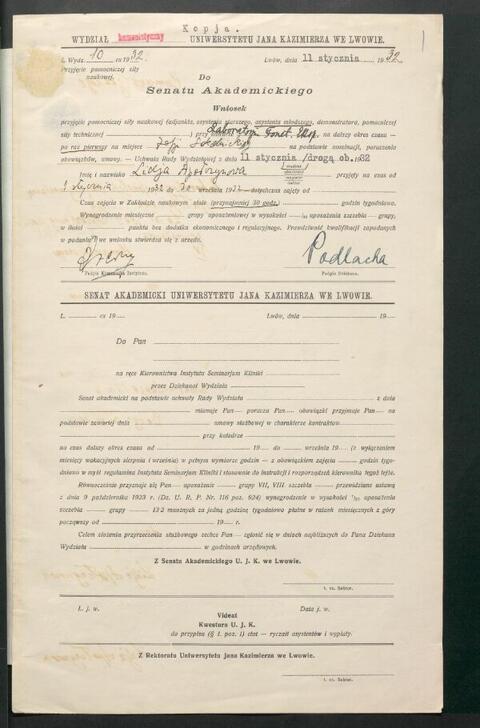 Kopja.
WYDZIAŁ humanistyczny UNIWERSYTETU JANA KAZIMIERZA WE LWOWIE.
L. Wydz. 10 ex 1932. Lwów, dnia 11 stycznia 1932
Przyjęcie pomocniczej siły
naukowej.
Do
Senatu Akademickiego
Wniosek
przyjęcie pomocniczej siły naukowej (adjunkta, asystenta starszego, asystenta młodszego, demonstratora, pomocniczej
siły technicznej) przy Laboratorjum Fonet. Eksp. na dalszy okres czasu —
po raz pierwszy na miejsce Zofji na podstawie nominacji, poruszenia
obowiązków, umowy. — Uchwała Rady Wydziałowej z 11 stycznia /drogą ob. 1932
Imię i nazwisko Lidja przyjęty na czas od
1 stycznia 1932 do 30 września 1932 dotychczas zajęty od
Czas zajęcia w Zakładzie naukowym
godzin tygodniowo.
Wynagrodzenie miesięczne — grupy uposażeniowej w wysokości uposażenia szczebla — grupy,
w ilości punktu bez dodatku ekonomicznego i regulacyjnego. Prawdziwość kwalifikacyj zapodanych
w podaniu we wniosku stwierdza się z urzędu.
Podlacha
Podpis Kierownika Instytutu. Podpis Dziekana.
SENAT AKADEMICKI UNIWERSYTETU JANA KAZIMIERZA WE LWOWIE.
L. — ex 19 — Lwów, dnia 19 —
Do Pan
na ręce Kierownictwa Instytutu Seminarjum Kliniki
przez Dziekanat Wydziału
Senat akademicki na podstawie uchwały Rady Wydziału z dnia
mianuje Pan porucza Pan obowiązki przyjmuje Pan
podstawie zawartej dnia umowy służbowej w charakterze kontraktów
przy katedrze
na czas dalszy okres czasu od 19 — do września 19 — (z wyłączeniem
miesięcy wakacyjnych sierpnia i września) w pełnym wymiarze godzin — z obowiązkiem zajęcia — godzin tygo-
dniowo w myśl regulaminu Instytutu Seminarjum Kliniki i stosownie do instrukcji i rozporządzeń kierownika tegoż tejże.
Równocześnie przyznaje się Pan uposażenie — grupy VII, VIII szczebla — przewidziane ustawą
z dnia 9 października 1923 r. (Dz. U. R. P. Nr. 116 poz. 924) wynagrodzenie w wysokości uposażenia
szczebla — grupy — 13·2 munżnych za jedną godzinę tygodniowo płatne w ratach miesięcznych z góry
począwszy od 19 — r.
Celem złożenia przyrzeczenia służbowego zechce Pan — zgłosić się w dniach najbliższych do Pana Dziekana
Wydziału w godzinach urzędowych.
Z Senatu Akademickiego U. J. K. we Lwowie.
t. cz. Rektor.
L. j. w. Data j. w.
Videat
Kwestura U. J. K.
do przypisu (§ 1. poz. 1) etat — ryczałt asystentów i wypłaty.
Z Rektoratu Uniwersytetu Jana Kazimierza we Lwowie.
t. cz. Rektor.